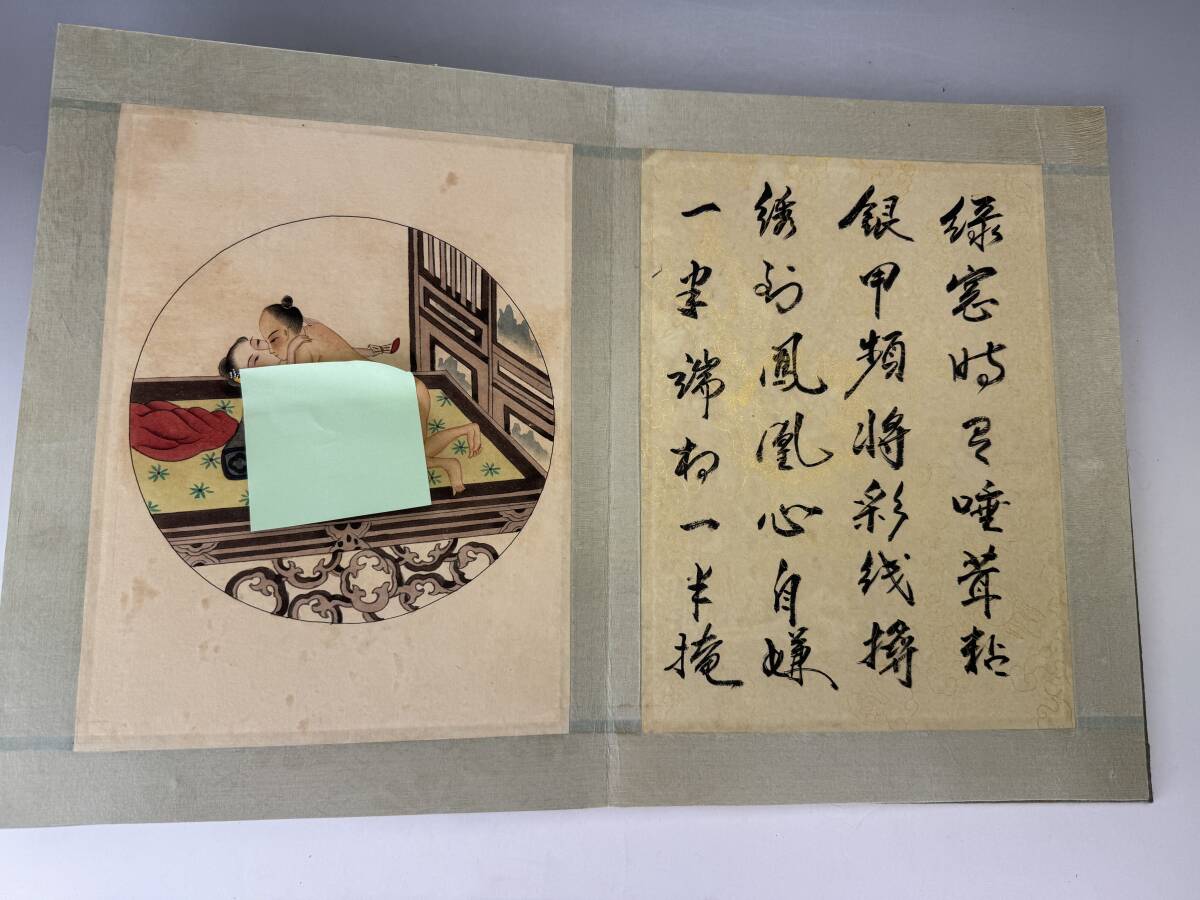 绿窗时有唾茸粘
银甲频将彩线挦
绣到凤凰心自嫌
一半端相一半掩